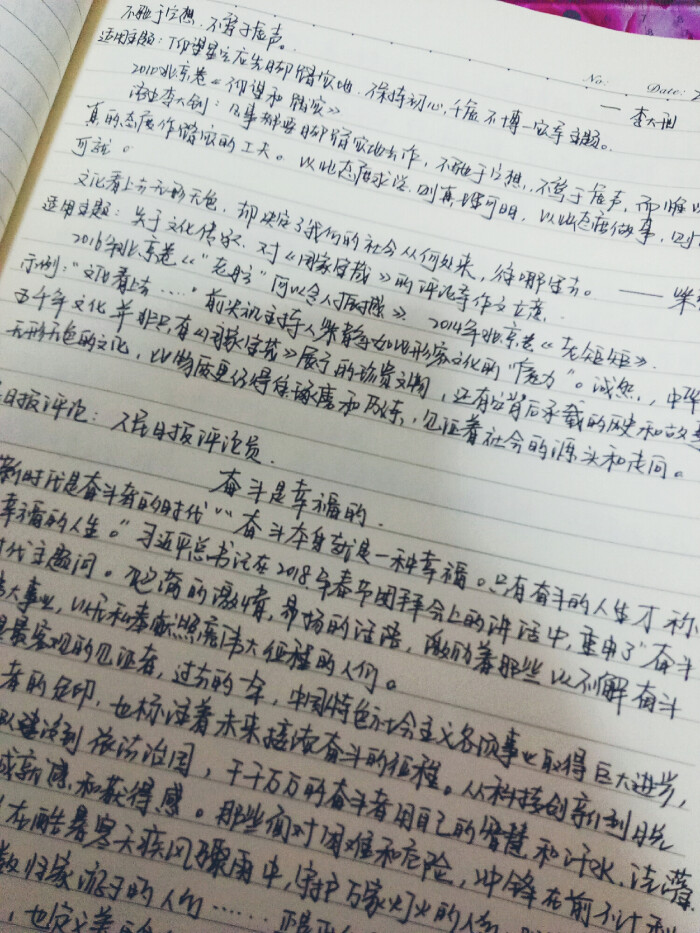 不驰于空想,不骛于虚声。
No: Date:
—— 李大钊
适用主题:"仰望星空应先脚踏实地,保持初心,千虚不博一实等主题。
2010北京卷《仰望和踏实》
李大钊:凡事都要脚踏实地去作,不驰于空想,不骛于虚声,而惟以
真的态度作踏实的工夫。以此态度求学,则真理可明,以此态度做事,则
可就。
文化看上去无形无色,却决定了我们的社会从何处来,往哪里去。——柴
适用主题:关于文化传承、对《国家宝藏》的评论等作文立意。
2016年北京卷《"老腔"何以令人震撼》 2014年北京卷《老规矩》.
示例:"文化看上去……"前央视主持人柴静如此形容文化的"魔力"。诚然,中华
五千年文化并非只有《国家宝藏》展示的珍贵文物,还有它背后承载的历史和故事
无形无色的文化,比物质更值得住琢磨和历练,见证着社会的源头和走向。
日报评论:人民日报评论员.
奋斗是幸福的.
新时代是奋斗者的时代""奋斗本身就是一种幸福。只有奋斗的人生才称
幸福的人生。"习近平总书记在2018年春节团拜会上的讲话中,重申了"奋斗
时代主题问。饱满的激情,昂扬的话语,激励着那些以不懈奋斗
大事业,以无私奉献照亮伟大征程的人们。
最客观的见证者,过去的一年,中国特色社会主义各项事业取得巨大进步,
者的足印,也标注着未来接续奋斗的征程。从科技创新到月先
队建设到依法治国,千千万万的奋斗者用自己的智慧和汗水,浇灌
成新感和获得感。那些面对困难和危险,冲锋在前不计
在酷暑寒天疾风骤雨中,守护万家灯火的人们
数归家游子的人们……正是
,也定义着